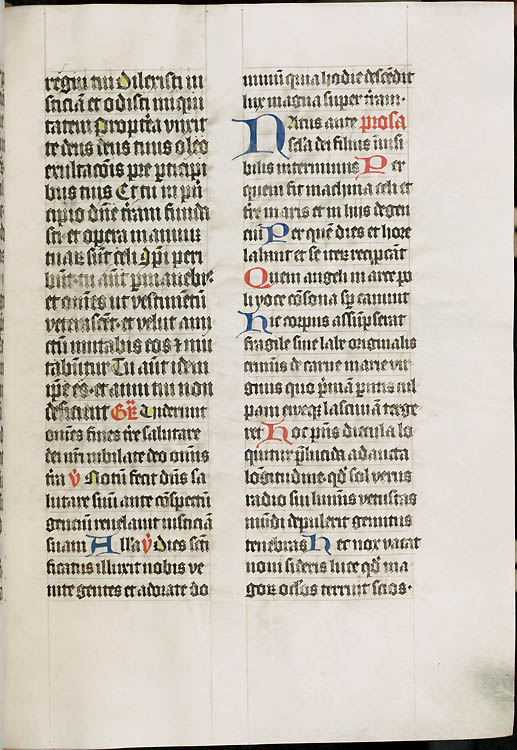 regni tui Dilexisti iu
sticiam et odisti iniqui
tatem Propt̄ea vnxit
te deus deus tuus oleo
exultacōis pre p̱ticipi
bus tuis Et tu in pn̄
cipio dn̄e t̄ram funda
sti· et opera manuū
tuaꝝ sūt celi Ip̄i peri
bunt· tu aūt p̱manebis·
et om̄es ut vestimentū
veterascēt· et velut ami
ctū mutabis eos ⁊ mu
tabūtur Tu aūt idem
ip̄e es· et anni tui non
deficiunt Gꝝ̄ Viderunt
om̄es fines t̄re salutare
dei nr̄i iubilate deo om̄is
t̄ra v̄ Notū fecit dn̄s sa
lutare suū ante cōspectū
gentiū reuelauit iusticiā
suam Alla v̄ Dies scī
ficatus illuxit nobis ve
nite gentes et adorate do
minū quia hodie descēdit
lux magna super t̄ram·
Natus ante Prosa
secla dei filius inuisi
bilis interminus Per
quem fit machina celi et
t̄re maris et in hiis degen
ciū Per quē dies et hore
labant et se iteꝝ recip̱cāt
Quem angeli in arce po
li voce cōsona sp̱ canunt
Hic corpus assūpserat
fragile sine labe originalis
crimīs de carne marie vir
ginis quo p̱mā parētis cul
pam eueqꝫ lasciuiam terge
ret Hoc pn̄s diecula lo
quitur p̱lucida adaucta
lōgitudine· qd̄ sol verus
radio sui luminis vetustas
mūdi depulerit genitus
tenebras Nec nox vacat
noui sideris luce qd̄ ma
goꝝ oclōs terruit scios·